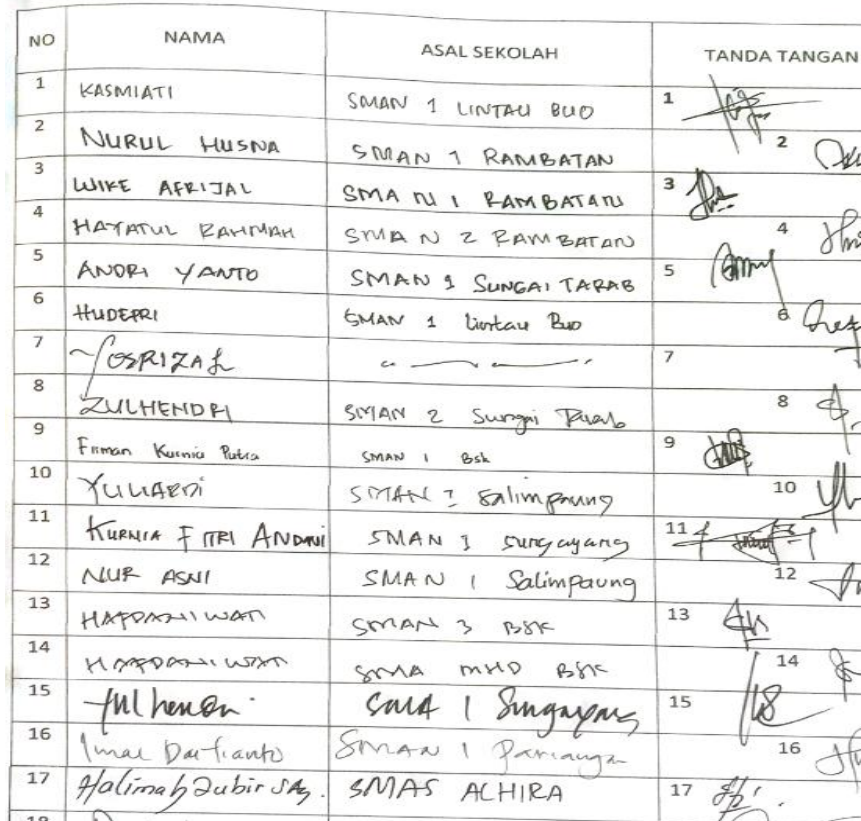 NO NAMA ASAL SEKOLAH TANDA TANGAN
1 KASMIATI SMAN 1 LINTAU BUO 1
2 NURUL HUSNA SMAN 1 RAMBATAN 2
3 WIKE AFRIJAL SMA N 1 RAMBATAN 3
4 HAYATUL RAHMAH SMA N 2 RAMBATAN 4
5 ANDRI YANTO SMAN 1 SUNGAI TARAB 5
6 HUDEPRI SMAN 1 Lintau Buo 6
7 YOSRIZAL 7
8 ZULHENDRI SMAN 2 Sungai Tarab 8
9 Firman Kurnia Putra SMAN 1 Bsk 9
10 YULIARDI SMAN 1 Salimpaung 10
11 KURNIA FITRI ANDANI SMAN 1 Sungayang 11
12 NUR ASNI SMAN 1 Salimpaung 12
13 HAFDANIWATI SMAN 3 BSK 13
14 HAFDANIWATI SMA MHD BSK 14
15 SMA 1 Sungayang 15
16 SMAN 1 Pariangan 16
17 Halimah Zubir SMAS ALHIRA 17
18